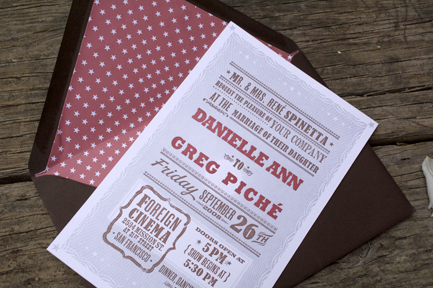 MR. & MRS. RENÉ SPINETTA
REQUEST THE PLEASURE OF YOUR COMPANY
AT THE MARRIAGE OF THEIR DAUGHTER
DANIELLE ANN
TO
GREG PICHÉ
Friday SEPTEMBER 26TH
2008
FOREIGN
CINEMA
2534 MISSION ST
AT 21ST STREET
SAN FRANCISCO
DOORS OPEN AT
5PM
{ SHOW BEGINS AT }
5:30 PM
DINNER, DANCING